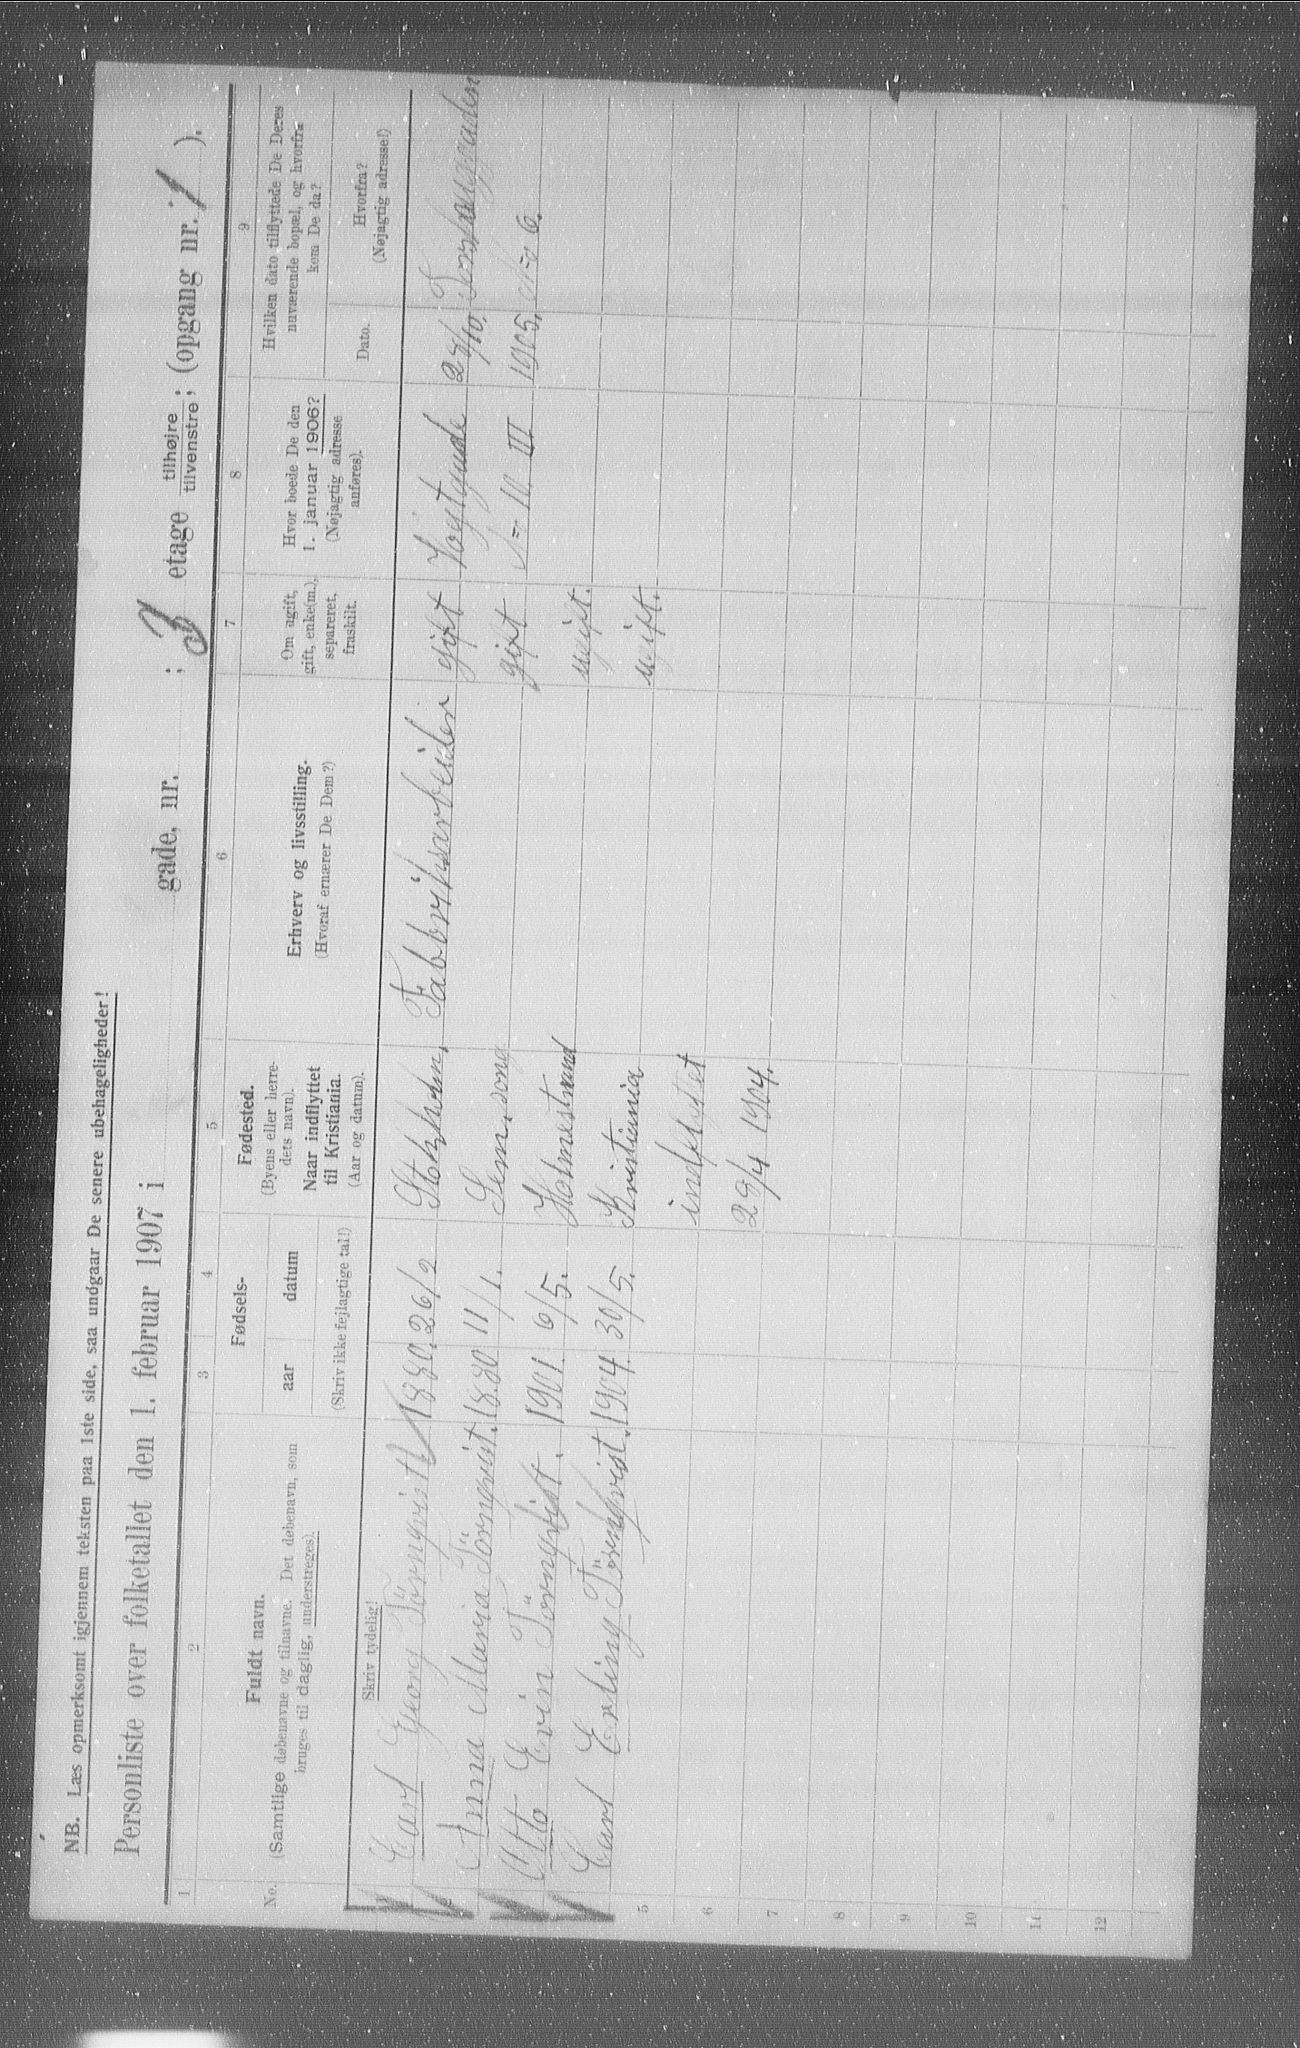 NB. Læs opmerksomt igjennem teksten paa 1ste side, saa undgaar De senere ubehageligheder!
Personliste over folketallet den 1. februar 1907 i gade, nr. ; 3 etage tilhøjre tilvenstre; (opgang nr. 1 ).
1 2 3 4 5 6 7 8 9
No. Fuldt navn.
(Samtlige døbenavne og tilnavne. Det døbenavn, som
bruges til daglig, understreges).
Skriv tydelig!
Fødsels-
aar datum
(Skriv ikke fejlagtige tal!)
Fødested.
(Byens eller herre-
dets navn).
Naar indflyttet
til Kristiania.
(Aar og datum).
Erhverv og livsstilling.
(Hvoraf ernærer De Dem?)
Om ugift,
gift, enke(m.),
separeret,
fraskilt.
Hvor boede De den
1. januar 1906?
(Nøjagtig adresse
anføres).
Hvilken dato tilflyttede De Deres
nuværende bopæl, og hvorfra
kom De da?
Dato.
Hvorfra?
(Nøjagtig adresse!)
Carl Georg Törnqvist 1880. 26/2 Stokholm, Fabbriksarbeider gift Vogtgade 28/10.
Anna Maria Törnqvist. 1880 11/1. Sem. gift No 10 III 1905. No 6.
Otto Evin Törnqvist. 1901. 6/5. Holmestrand ugift.
Carl Erling Törnqvist. 1904. 30/5. Kristiania ugift.
5 indflyttet
6 29/4 1904.
7
8
9
10
11
12